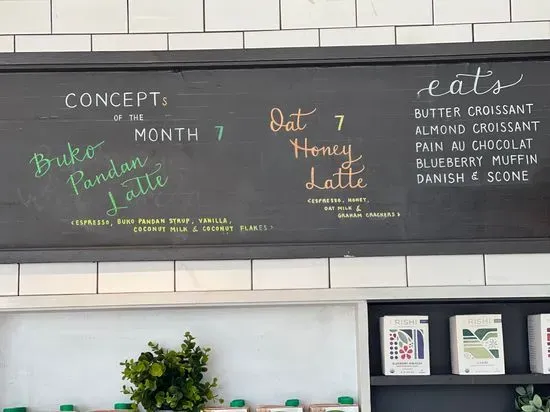 CONCEPTs
OF THE
MONTH 7
Buko
Pandan
Latte
<ESPRESSO, BUKO PANDAN SYRUP, VANILLA,
COCONUT MILK & COCONUT FLAKES>
Oat 7
Honey
Latte
<ESPRESSO, HONEY,
OAT MILK &
GRAHAM CRACKERS>
eats
BUTTER CROISSANT
ALMOND CROISSANT
PAIN AU CHOCOLAT
BLUEBERRY MUFFIN
DANISH & SCONE
RISHI
RISHI